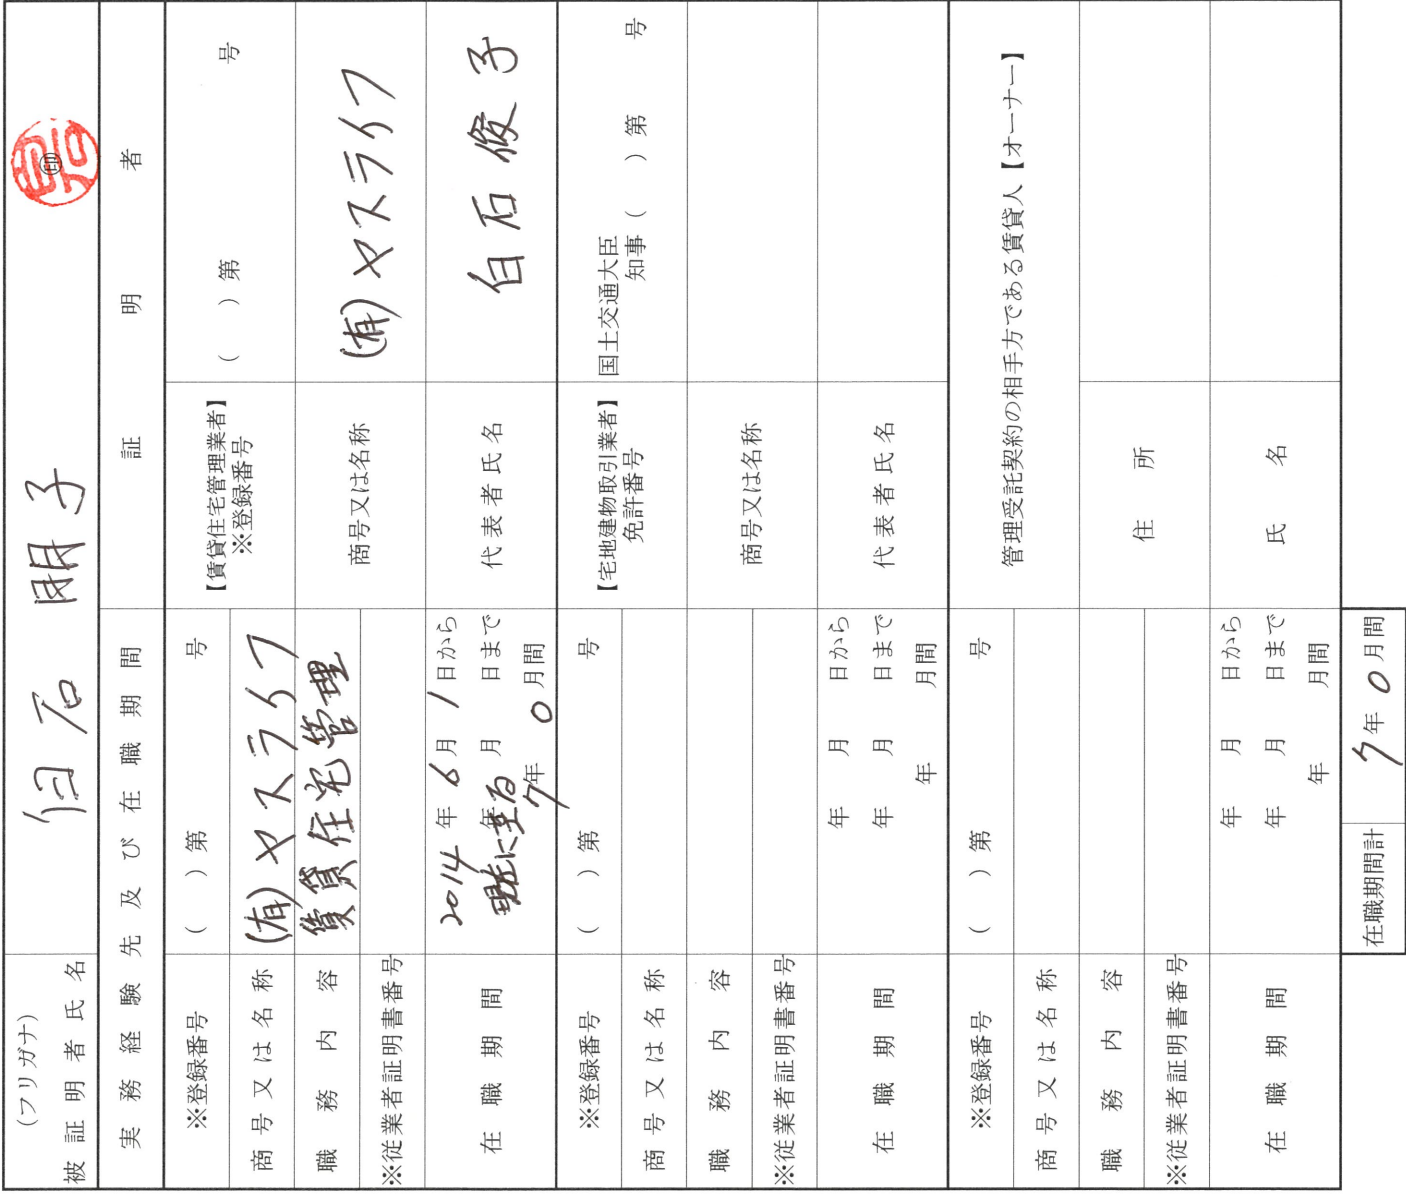 (フリガナ)
被証明者氏名 白石 明子 ㊞
実務経験先及び在職期間 証明者
※登録番号 ( )第 号
【賃貸住宅管理業者】
※登録番号 ( )第 号
商号又は名称 (有)ヤスライフ
商号又は名称 (有)ヤスライフ
職務内容 賃貸住宅管理
※従業者証明書番号
代表者氏名 白石俊子
在職期間 2014年6月1日から
年 月 日まで
現在に至る
7年0月間
※登録番号 ( )第 号
【宅地建物取引業者】
免許番号
国土交通大臣
知事( )第 号
商号又は名称
商号又は名称
職務内容
※従業者証明書番号
代表者氏名
在職期間 年 月 日から
年 月 日まで
年 月間
※登録番号 ( )第 号
管理受託契約の相手方である賃貸人【オーナー】
商号又は名称
職務内容
住所
※従業者証明書番号
氏名
在職期間 年 月 日から
年 月 日まで
年 月間
在職期間計 7年0月間